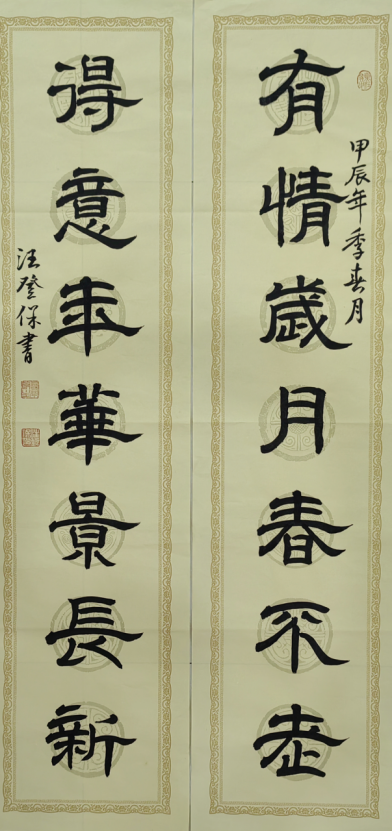 有情歲月春不老
甲辰年季春月
得意年華景長新
汪登保書